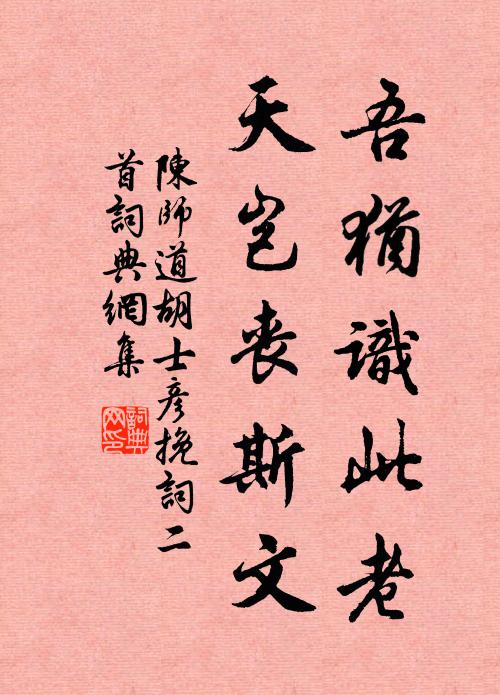 吾猶識此老
天豈喪斯文
陳師道胡士彥挽詞二
首詞典網集
詞典网印